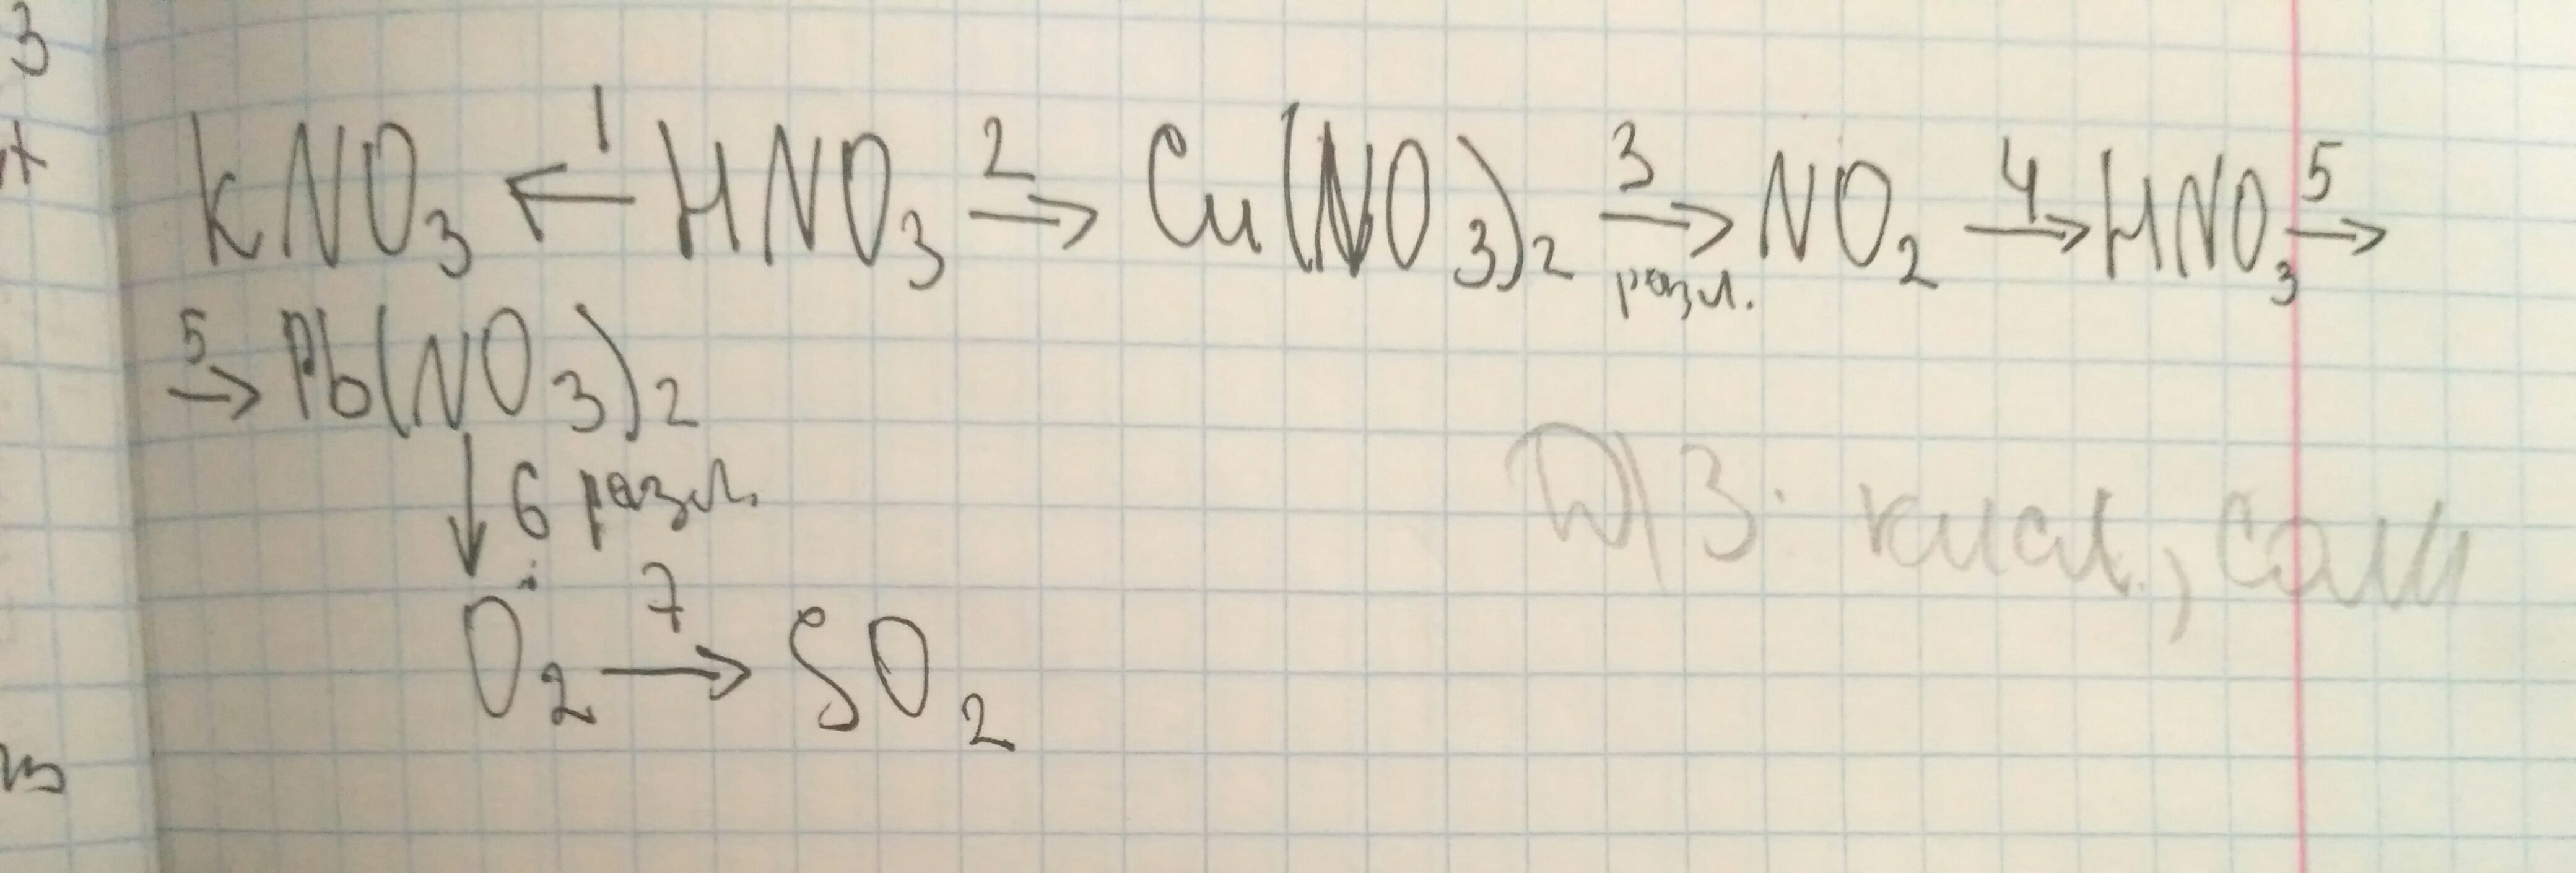 3
KNO₃ ←1 HNO₃ 2→ Cu(NO₃)₂ 3→ разл. NO₂ 4→ HNO₃ 5→
5→ Pb(NO₃)₂
↓ 6 разл.
O₂ 7→ SO₂
Д/З: кисл., соли